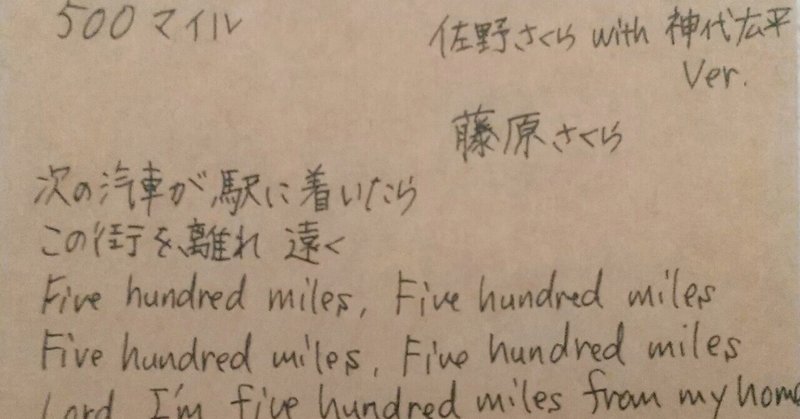 500マイル
佐野さくら with 神代広平
Ver.
藤原さくら
次の汽車が駅に着いたら
この街を離れ 遠く
Five hundred miles, Five hundred miles
Five hundred miles, Five hundred miles
Lord I'm five hundred miles from my home